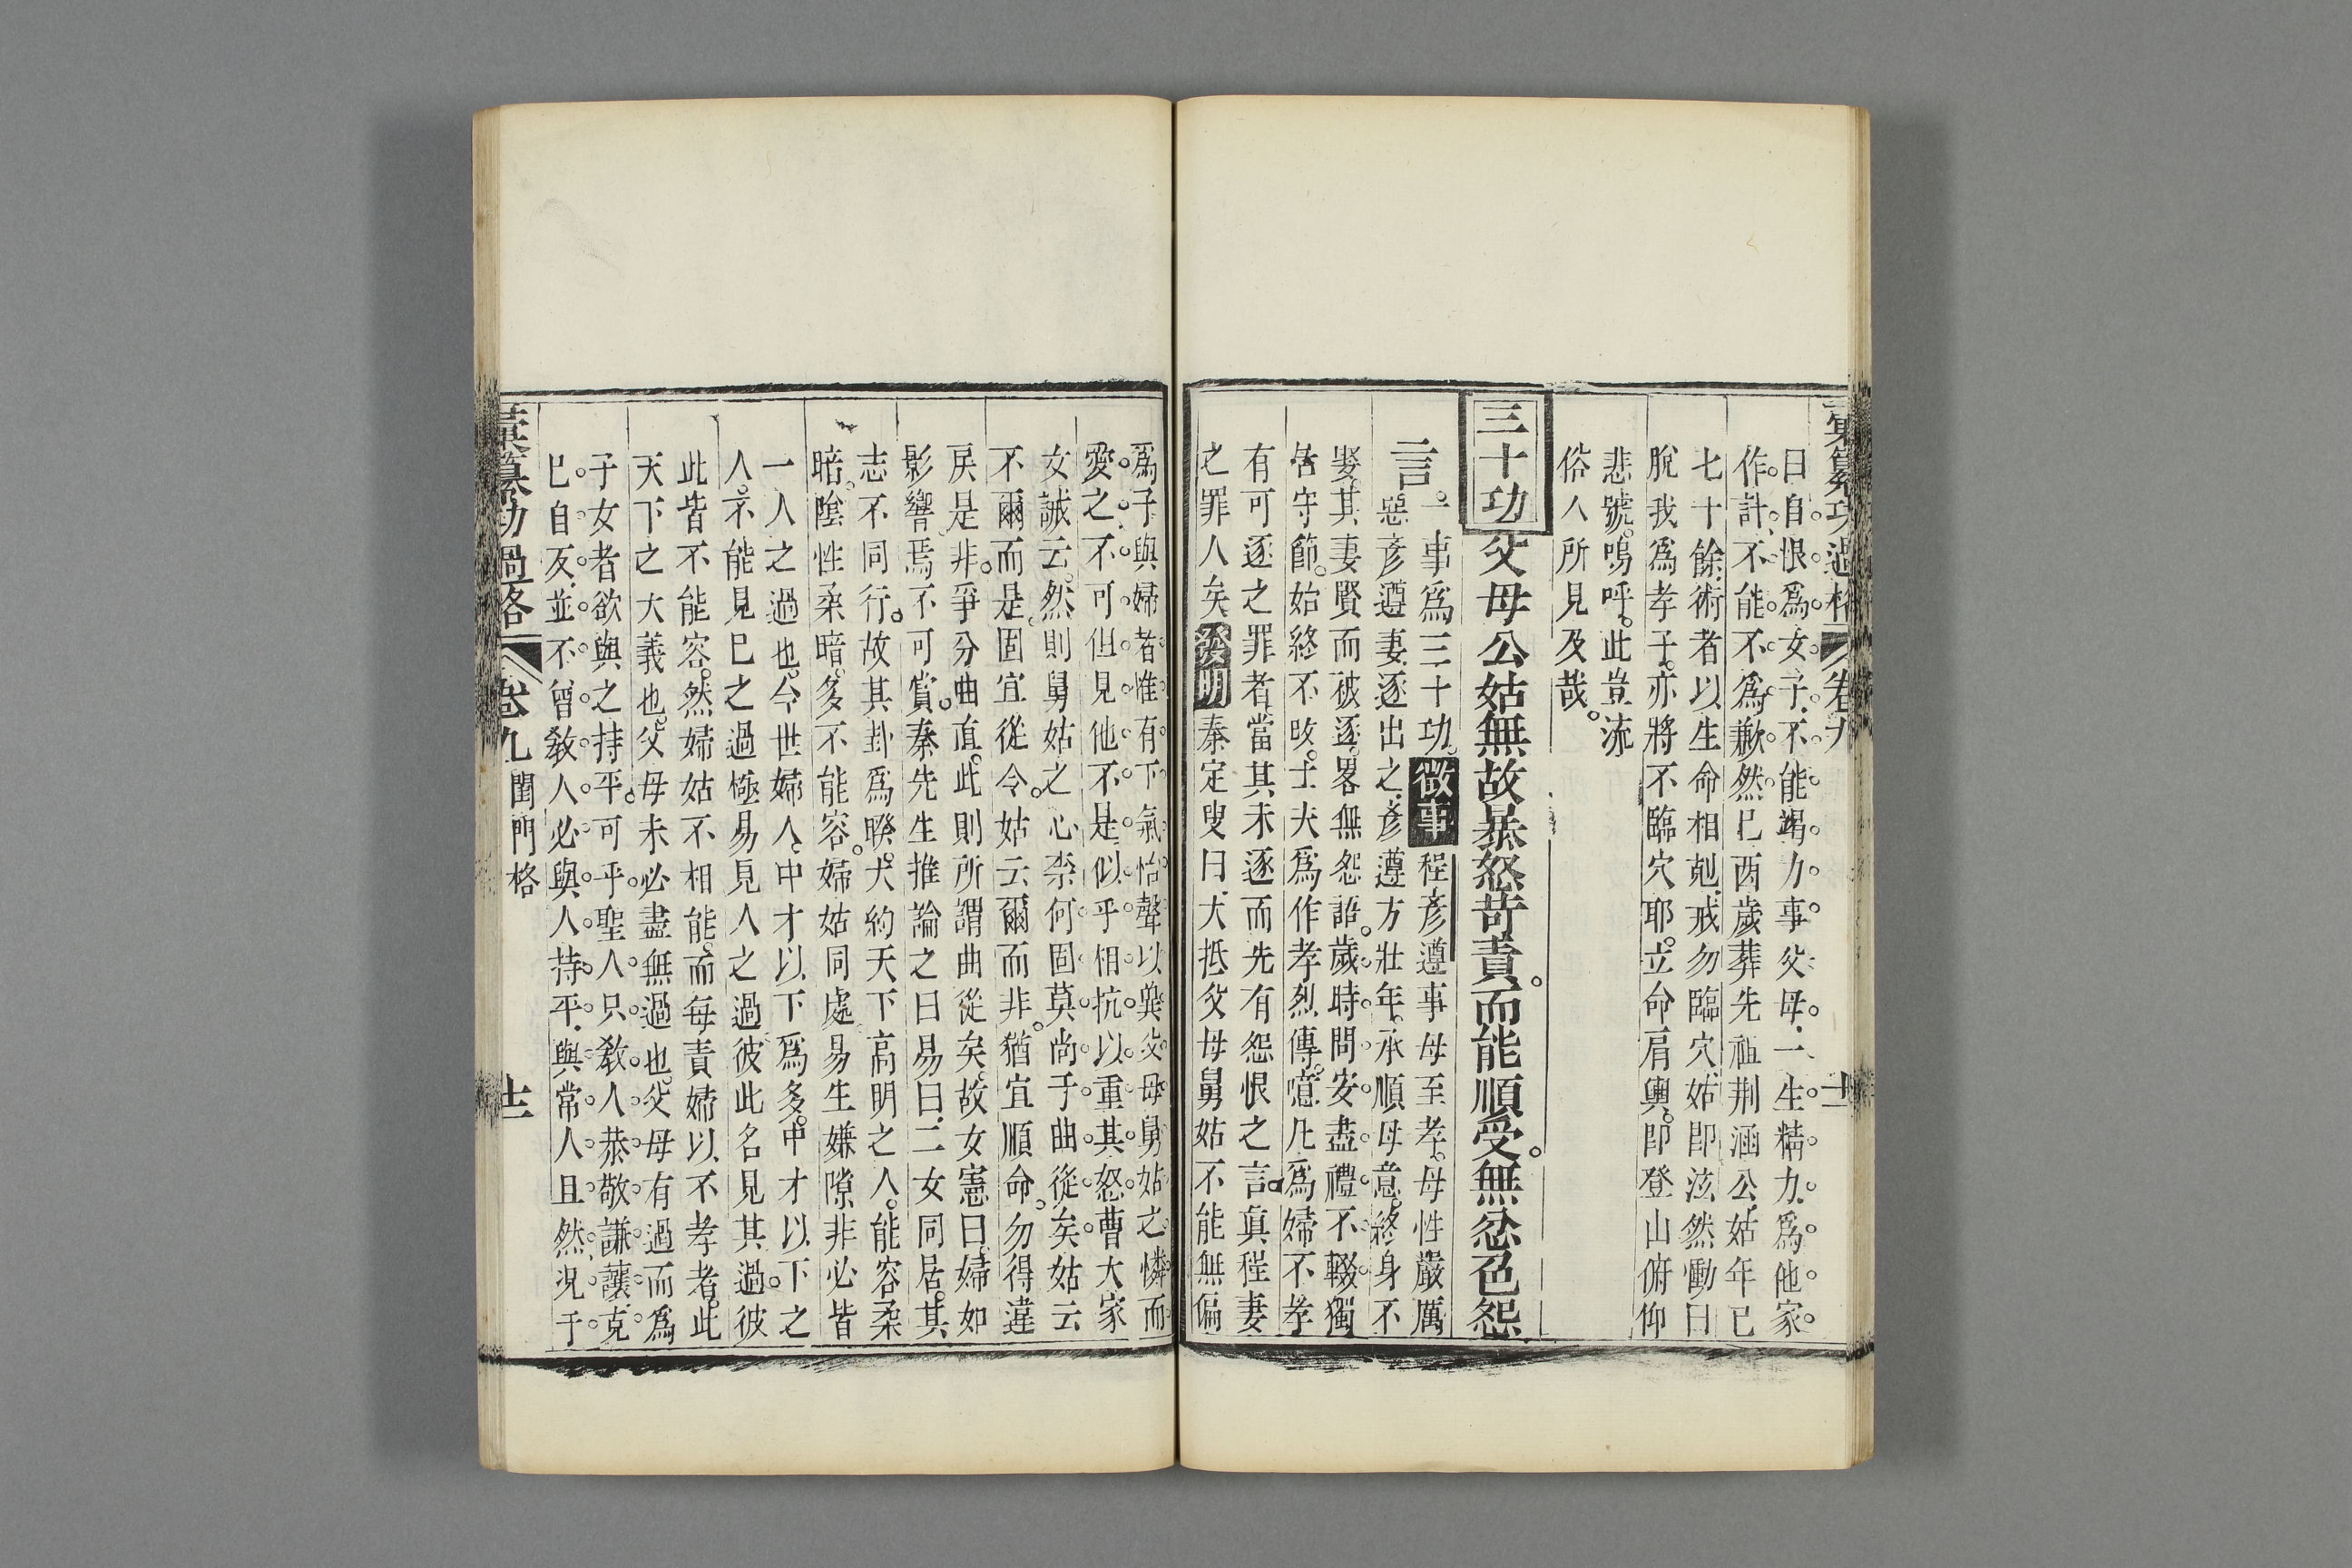 彙纂功過格 卷九
曰自恨爲女子不能竭力事父母一生精力爲他家
作計不能不爲歉然已西歲葬先祖荆涵公姑年已
七十餘術者以生命相尅戒勿臨穴姑卽泫然慟曰
脫我爲孝子亦將不臨穴耶立命肩輿卽登山俯仰
悲號嗚呼此豈流
俗人所見及哉
三十功 父母公姑無故暴怒苛責而能順受無忿色怨
言
一事爲三十功 徵事 程彥遵事母至孝母性嚴厲
惡彥遵妻逐出之彥遵方壯年承順母意終身不
娶其妻賢而被逐畧無怨詬歲時問安盡禮不輟獨
居守節始終不改士夫爲作孝烈傳噫凡爲婦不孝
有可逐之罪者當其未逐而先有怨恨之言眞程妻
之罪人矣 發明 秦定叟曰大抵父母舅姑不能無偏
爲子與婦者惟有下氣怡聲以巽父母舅姑之憐而
愛之不可但見他不是似乎相抗以重其怒曹大家
女誡云然則舅姑之心柰何固莫尚于曲從矣姑云
不爾而是固宜從令姑云爾而非猶宜順命勿得違
戾是非爭分曲直此則所謂曲從矣故女憲曰婦如
影響焉不可賞秦先生推論之曰易曰二女同居其
志不同行故其卦爲睽大約天下高明之人能容柔
暗陰性柔暗多不能容婦姑同處易生嫌隙非必皆
一人之過也今世婦人中才以下爲多中才以下之
人不能見已之過極易見人之過彼此名見其過彼
此皆不能容然婦姑不相能而每責婦以不孝者此
天下之大義也父母未必盡無過也父母有過而爲
子女者欲與之持平可乎聖人只敎人恭敬謙讓克
已自反並不曾敎人必與人持平與常人且然況于
彙纂功過格 卷九 閨門格 十二